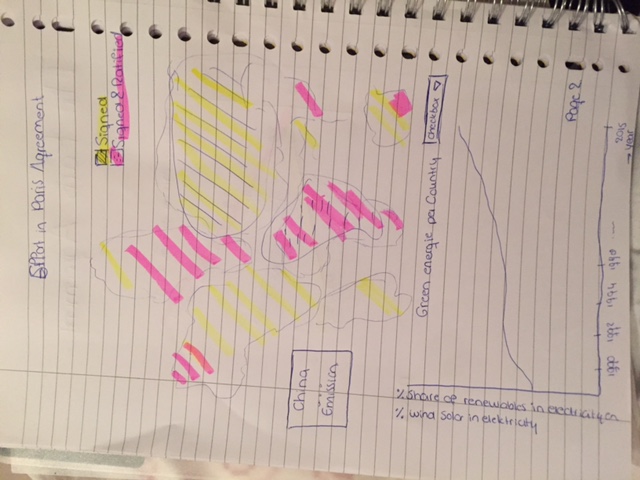 Effort in Paris Agreement
Signed
Signed & Ratified
China
Emission
Green energie per Country
checkbox
% share of renewables in electricity
% wind solar in elektricity
1990 1992 1994 1990 ...
2015
→ year
Page 2